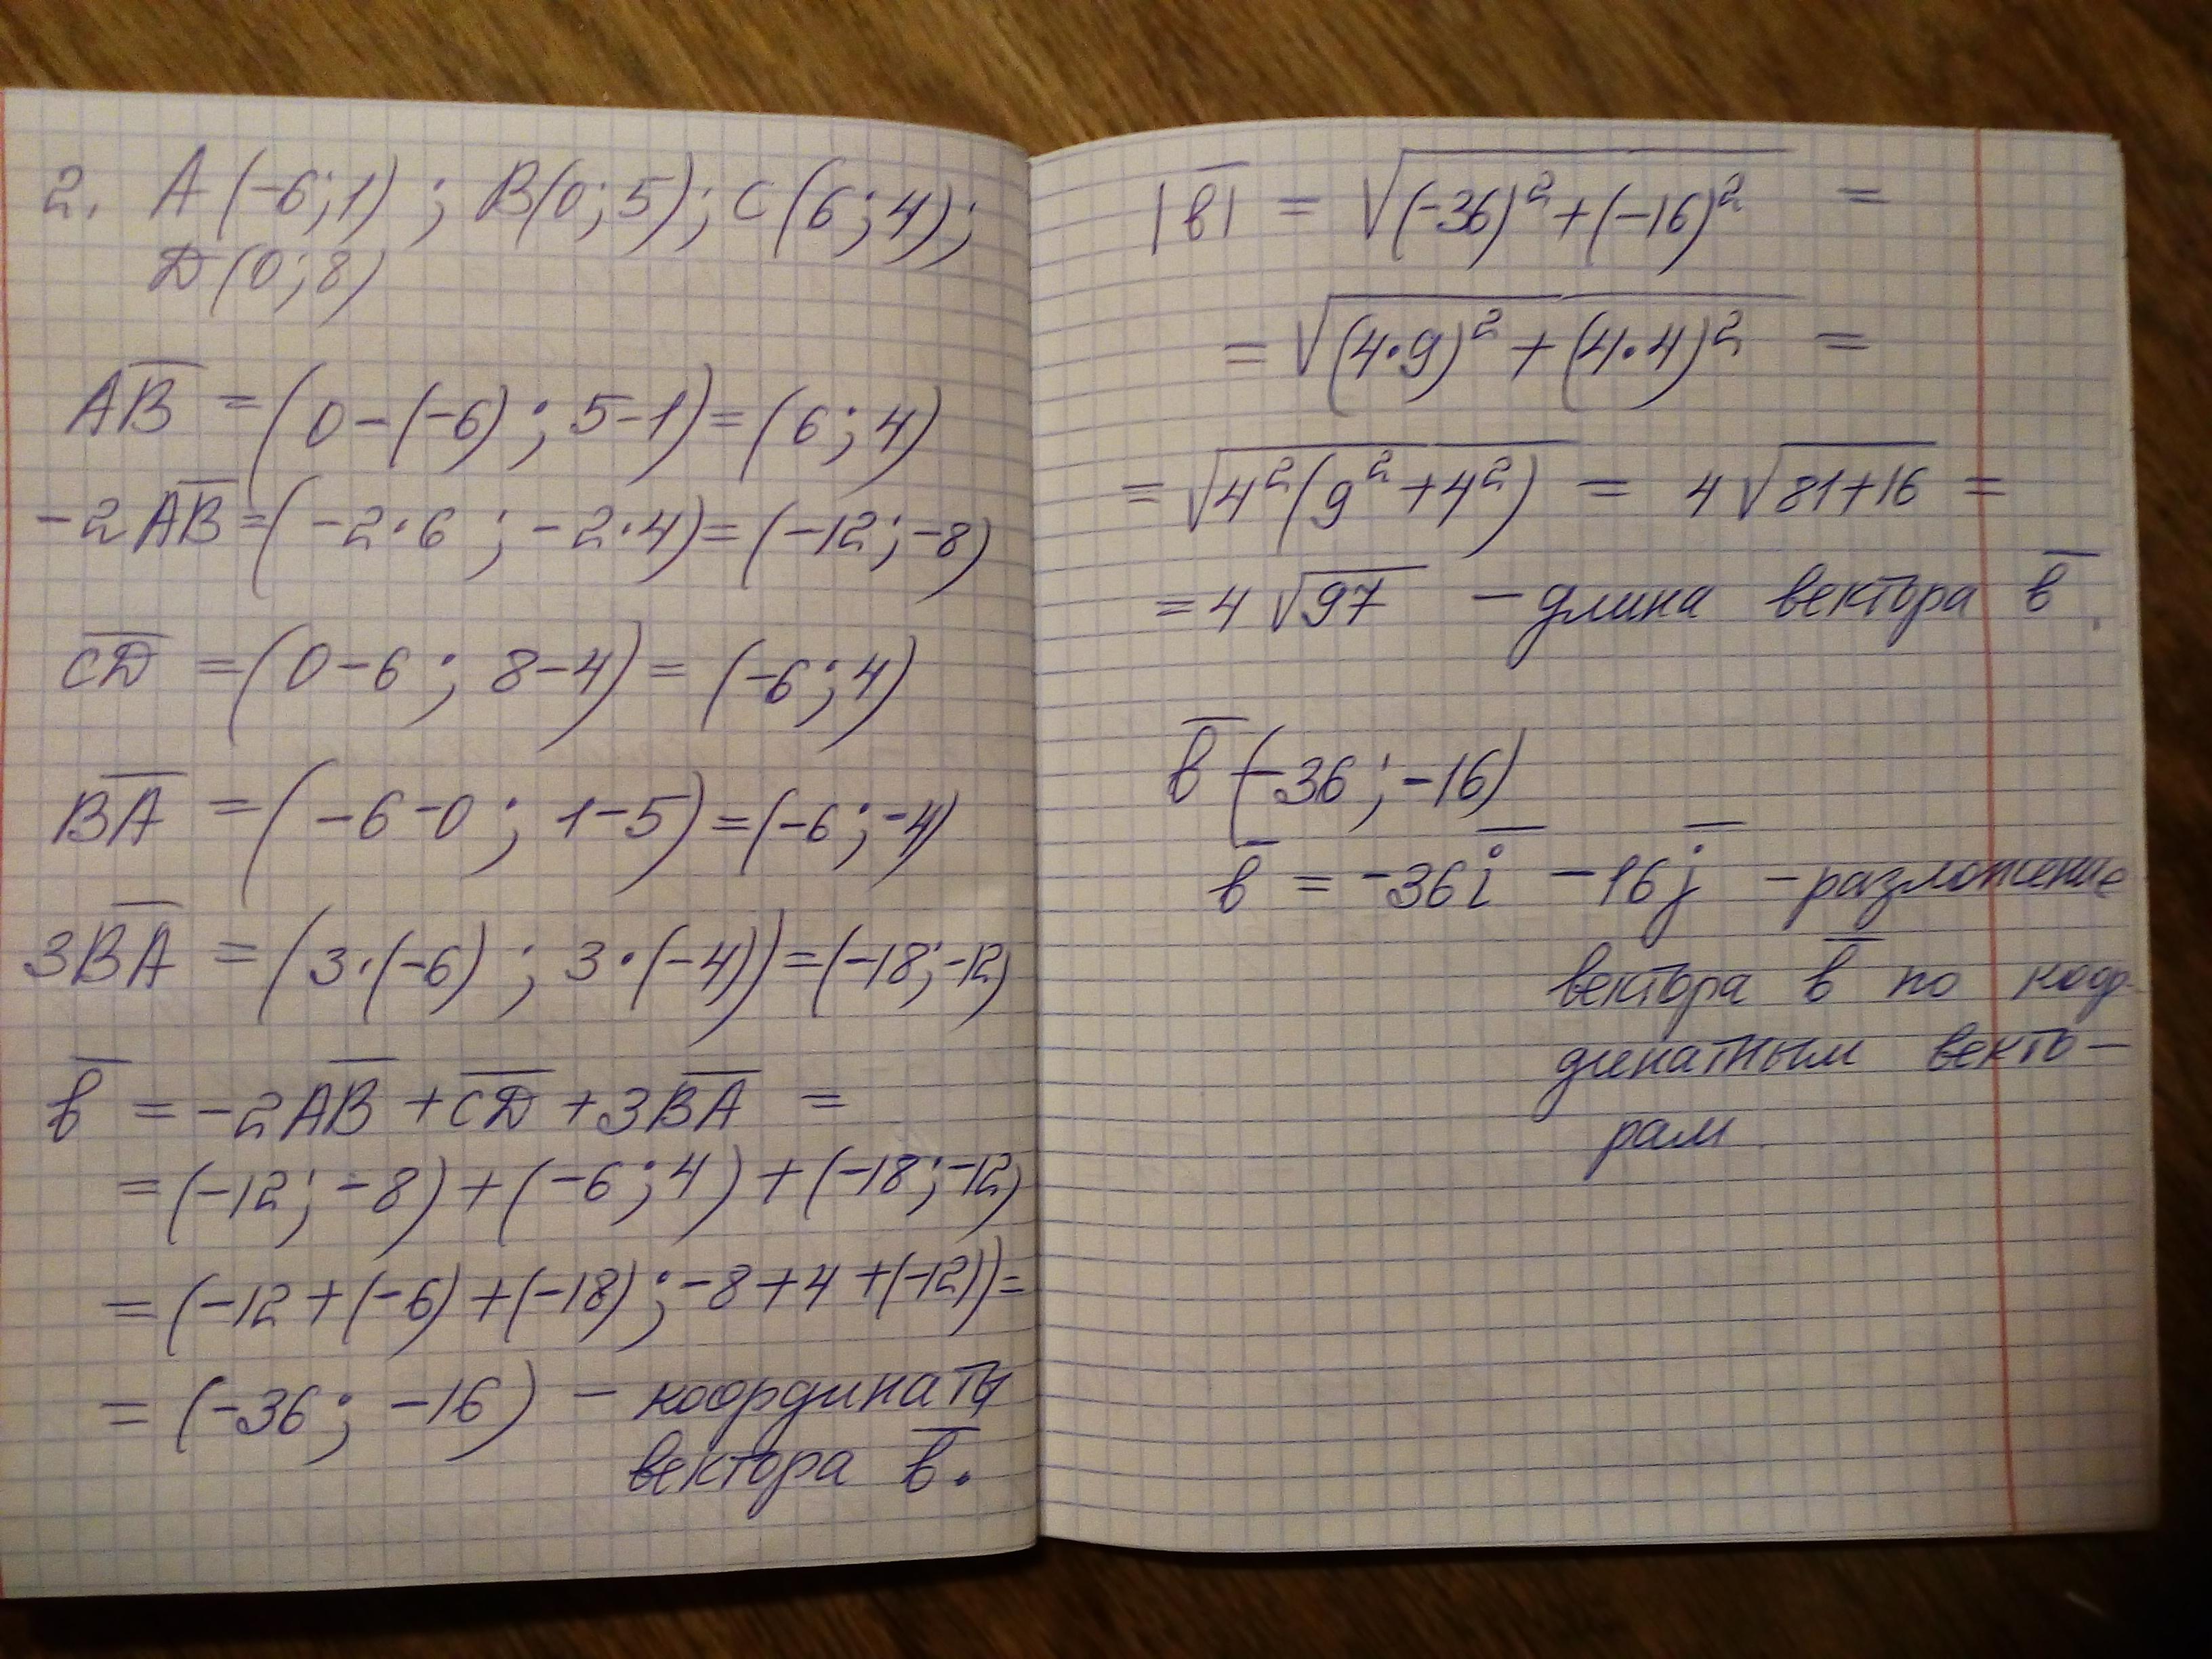 2. A(-6;1); B(0;5); C(6;4);
D(0;8)
A̅B̅ = (0-(-6); 5-1) = (6;4)
-2A̅B̅ = (-2·6; -2·4) = (-12;-8)
C̅D̅ = (0-6; 8-4) = (-6;4)
B̅A̅ = (-6-0; 1-5) = (-6;-4)
3B̅A̅ = (3·(-6); 3·(-4)) = (-18;-12)
b̅ = -2A̅B̅ + C̅D̅ + 3B̅A̅ =
= (-12;-8) + (-6;4) + (-18;-12)
= (-12+(-6)+(-18); -8+4+(-12)) =
= (-36; -16) - координаты
вектора b̅.
|b̅| = √((-36)²+(-16)²) =
= √((4·9)²+(4·4)²) =
= √(4²(9²+4²)) = 4√(81+16) =
= 4√97 - длина вектора b̅.
b̅(-36;-16)
b̅ = -36i̅ - 16j̅ - разложение
вектора b̅ по коор-
динатным векто-
рам.